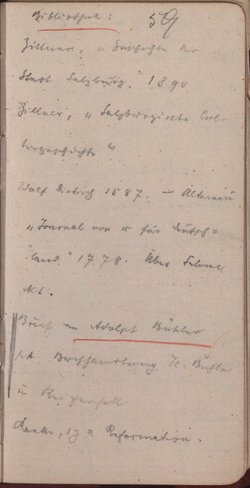 Bibliothek: 59
Zillner, „Geschichte der
Stadt Salzburg." 1890
Zillner, „Salzburgische Cul-
turgeschichte"
Wolf Dietrich 1587. – Altenau
„Journal von u für Deutsch-
land" 1778. Über
Brief an Adolph Bühler
Buchhandlung H. Bühler
in
Ranke, Reformation.